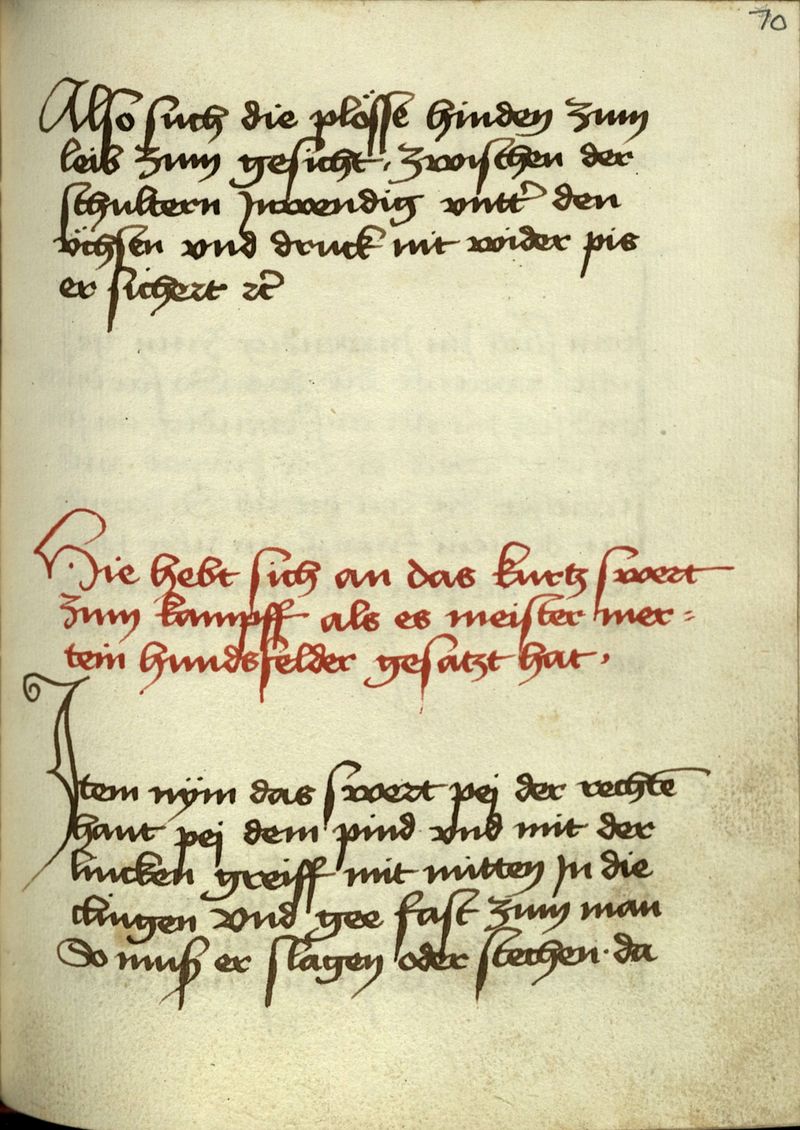 70
Also such die plösse hinden zum
leib zum gesicht, zwischen der
schultern Inwendig vntt̉ den
v̈chsen vnd druck nit wider pis
er sichert ꝛc̉
Hie hebt sich an das kurtz swert
zum kampff als es meister mer=
tein hundsfelder gesatzt hat,
Item nÿm das swert pej der rechtē
hant pej dem pind vnd mit der
lincken greiff mit mitten In die
clingen vnd gee fast zum man
So muß er slagen oder stechen · da